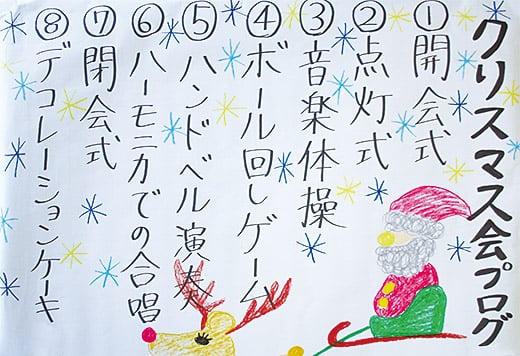 クリスマス会プログ
①開会式
②点灯式
③音楽体操
④ボール回しゲーム
⑤ハンドベル演奏
⑥ハーモニカでの合唱
⑦閉会式
⑧デコレーションケーキ